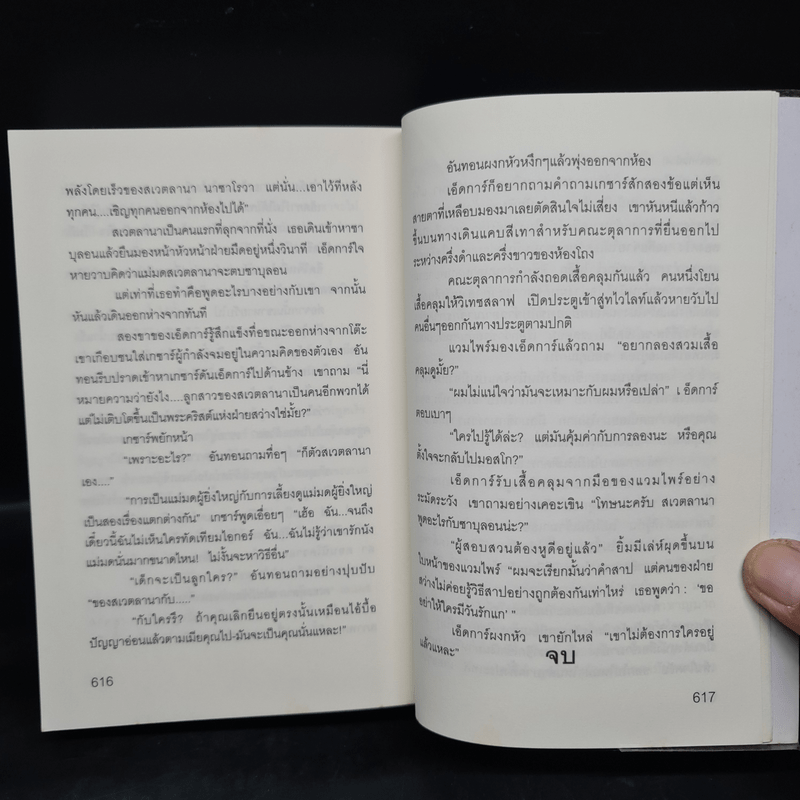 พลังโดยเร็วของสเวตลานา นาซาโรวา แต่นั่น...เอาไว้ทีหลัง
ทุกคน....เชิญทุกคนออกจากห้องไปได้"
สเวตลานาเป็นคนแรกที่ลุกจากที่นั่ง เธอเดินเข้าหาซา
บุลอนแล้วยืนมองหน้าหัวหน้าฝ่ายมืดอยู่หนึ่งวินาที เอ็ดการ์ใจ
หายวาบคิดว่าแม่มดสเวตลานาจะตบซาบุลอน
แต่เท่าที่เธอทำคือพูดอะไรบางอย่างกับเขา จากนั้น
หันแล้วเดินออกห่างจากทันที
สองขาของเอ็ดการ์รู้สึกแข็งทื่อขณะออกห่างจากโต๊ะ
เขาเกือบชนใส่เกซาร์ผู้กำลังจมอยู่ในความคิดของตัวเอง อัน
ทอนรีบปราดเข้าหาเกซาร์ดันเอ็ดการ์ไปด้านข้าง เขาถาม "นี่
หมายความว่ายังไง....ลูกสาวของสเวตลานาเป็นคนอีกพวกได้
แต่ไม่เติบโตขึ้นเป็นพระคริสต์แห่งฝ่ายสว่างใช่มั้ย?"
เกซาร์พยักหน้า
"เพราะอะไร?" อันทอนถามทื่อๆ "ก็ตัวสเวตลานา
เอง...."
"การเป็นแม่มดผู้ยิ่งใหญ่กับการเลี้ยงดูแม่มดผู้ยิ่งใหญ่
เป็นสองเรื่องแตกต่างกัน" เกซาร์พูดเอื่อยๆ "เฮ้อ ฉัน...จนถึง
เดี๋ยวนี้ฉันไม่เห็นใครทัดเทียมไอกอร์ ฉัน...ฉันไม่รู้ว่าเขารักนัง
แม่มดนั่นมากขนาดไหน! ไม่งั้นจะหาวิธีอื่น"
"เด็กจะเป็นลูกใคร?" อันทอนถามอย่างปุบปับ
"ของสเวตลานากับ....."
"กับใครรึ? ถ้าคุณเลิกยืนอยู่ตรงนั้นเหมือนไอ้บื้อ
ปัญญาอ่อนแล้วตามเมียคุณไป-มันจะเป็นคุณนั่นแหละ!"
616
อันทอนผงกหัวหงึกๆแล้วพุ่งออกจากห้อง
เอ็ดการ์ก็อยากถามคำถามเกซาร์สักสองข้อแต่เห็น
สายตาที่เหลือบมองมาเลยตัดสินใจไม่เสี่ยง เขาหันหนีแล้วก้าว
ขึ้นบนทางเดินแคบสีเทาสำหรับคณะตุลาการที่ยื่นออกไป
ระหว่างครึ่งดำและครึ่งขาวของห้องโถง
คณะตุลาการกำลังถอดเสื้อคลุมกันแล้ว คนหนึ่งโยน
เสื้อคลุมให้วิเทซสลาฟ เปิดประตูเข้าสู่ทไวไลท์แล้วหายวับไป
คนอื่นๆออกกันทางประตูตามปกติ
แวมไพร์มองเอ็ดการ์แล้วถาม "อยากลองสวมเสื้อ
คลุมดูมั้ย?"
"ผมไม่แน่ใจว่ามันจะเหมาะกับผมหรือเปล่า" เอ็ดการ์
ตอบเบาๆ
"ใครไปรู้ได้ล่ะ? แต่มันคุ้มค่ากับการลองนะ หรือคุณ
ตั้งใจจะกลับไปมอสโก?"
เอ็ดการ์รับเสื้อคลุมจากมือของแวมไพร์อย่าง
ระมัดระวัง เขาถามอย่างเคอะเขิน "โทษนะครับ สเวตลานา
พูดอะไรกับซาบุลอนน่ะ?"
"ผู้สอบสวนต้องหูดีอยู่แล้ว" ยิ้มมีเล่ห์ผุดขึ้นบน
ใบหน้าของแวมไพร์ "ผมจะเรียกมั้นว่าคำสาป แต่คนของฝ่าย
สว่างไม่ค่อยรู้วิธีสาปอย่างถูกต้องกันเท่าไหร่ เธอพูดว่า : 'ขอ
อย่าให้ใครมีวันรักแก' "
เอ็ดการ์ผงกหัว เขายักไหล่ "เขาไม่ต้องการใครอยู่
แล้วแหละ"
จบ
617